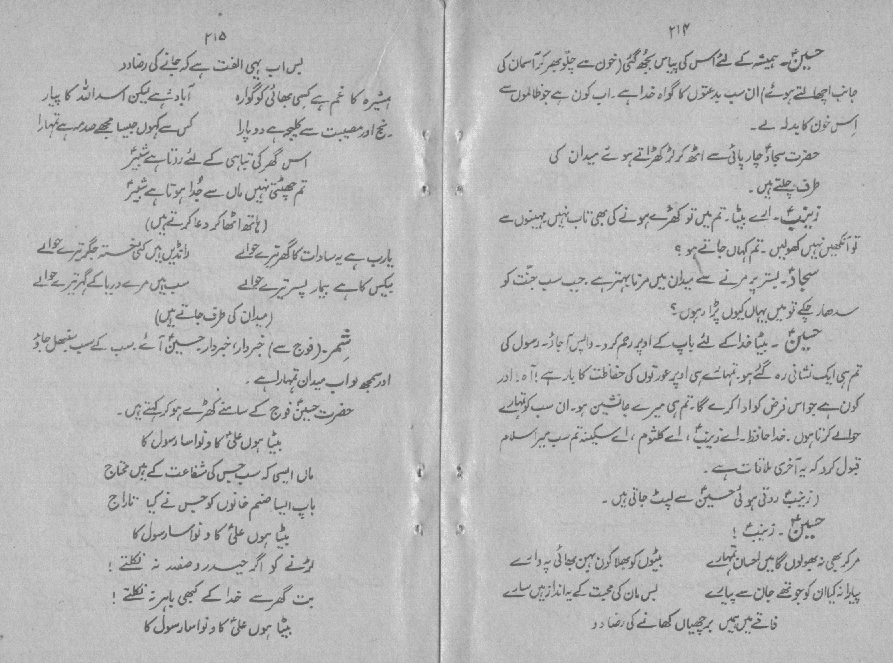 ۲۱۴
حسینؑ۔ ہمیشہ کے لئے اس کی پیاس بجھ گئی (خون سے چلّو بھر کر آسمان کی
جانب اچھالتے ہوئے) ان سب بدعتوں کا گواہ خدا ہے۔ اب کون ہے جو ظالموں سے
اِس خون کا بدلہ لے۔
حضرت سجادؑ چارپائی سے اٹھ کر لڑکھڑاتے ہوئے میدان کی
طرف چلتے ہیں۔
زینبؑ۔ ارے بیٹا۔ تم میں تو کھڑے ہونے کی بھی تاب نہیں مہینوں سے
تو آنکھیں نہیں کھولیں۔ تم کہاں جاتے ہو؟
سجادؑ۔ بستر پر مرنے سے میدان میں مرنا بہتر ہے۔ جب سب جنّت کو
سدھار چکے تو میں یہاں کیوں پڑا رہوں؟
حسینؑ۔ بیٹا خدا کے لئے باپ کے اوپر رحم کرو۔ واپس آ جاؤ۔ رسول کی
تم ہی ایک نشانی رہ گئے ہو۔ تمہارے ہی اوپر عورتوں کی حفاظت کا بار ہے! آہ! اور
کون ہے جو اس فرض کو ادا کرے گا۔ تم ہی میرے جانشین ہو۔ ان سب کو تمہارے
حوالے کرتا ہوں۔ خدا حافظ۔ اے زینبؑ، اے کلثوم، اے سکینہ تم سب میرا سلام
قبول کرو کہ یہ آخری ملاقات ہے۔
(زینبؑ روتی ہوئی حسینؑ سے لپٹ جاتی ہیں۔
حسینؑ۔ زینبؑ!
مر کر بھی نہ بھولوں گا میں احسان تمہارے بیٹوں کو بھلا کون بہن بھائی پہ وارے
پیارا نہ کیا ان کو جو تھے جان سے پیارے بس ماں کی محبت کے یہ انداز ہیں سارے
فاقے میں ہمیں برچھیاں کھانے کی رضا دو
۲۱۵
بس اب یہی الفت ہے کہ جانے کی رضا دو
ہمشیرہ کا غم ہے کسی بھائی کو گوارہ آباد ہے لیکن اسد اللہ کا پیارا
رنج اور مصیبت سے کلیجہ ہے دوپارا کس سے کہوں جیسا مجھے صدمہ ہے تمہارا
اس گھر کی تباہی کے لئے روتا ہے شبیرؑ
تم چھٹتی نہیں ماں سے جُدا ہوتا ہے شبیرؑ
(ہاتھ اٹھا کر دعا کرتے ہیں)
یارب ہے یہ سادات کا گھر تیرے حوالے رانڈیں ہیں کئی خستہ جگر تیرے حوالے
بیکس کا ہے بیمار پسر تیرے حوالے سب ہیں مرے دریا کے گہر تیرے حوالے
(میدان کی طرف جاتے ہیں)
شمر۔ (فوج سے) خبردار! خبردار۔ حسینؑ آئے۔ سب کے سب سنبھل جاؤ
اور سمجھ لو اب میدان تمہارا ہے۔
حضرت حسینؑ فوج کے سامنے کھڑے ہو کر کہتے ہیں۔
بیٹا ہوں علیؑ کا و نواسا رسول کا
ماں ایسی کہ سب جس کی شفاعت کے ہیں محتاج
باپ ایسا صنم خانوں کو جس نے کیا تاراج
بیٹا ہوں علیؑ کا و نواسا رسول کا
لڑنے کو اگر حیدر و صفدر نہ نکلتے!
بت گھر سے خدا کے کبھی باہر نہ نکلتے!
بیٹا ہوں علیؑ کا و نواسا رسول کا